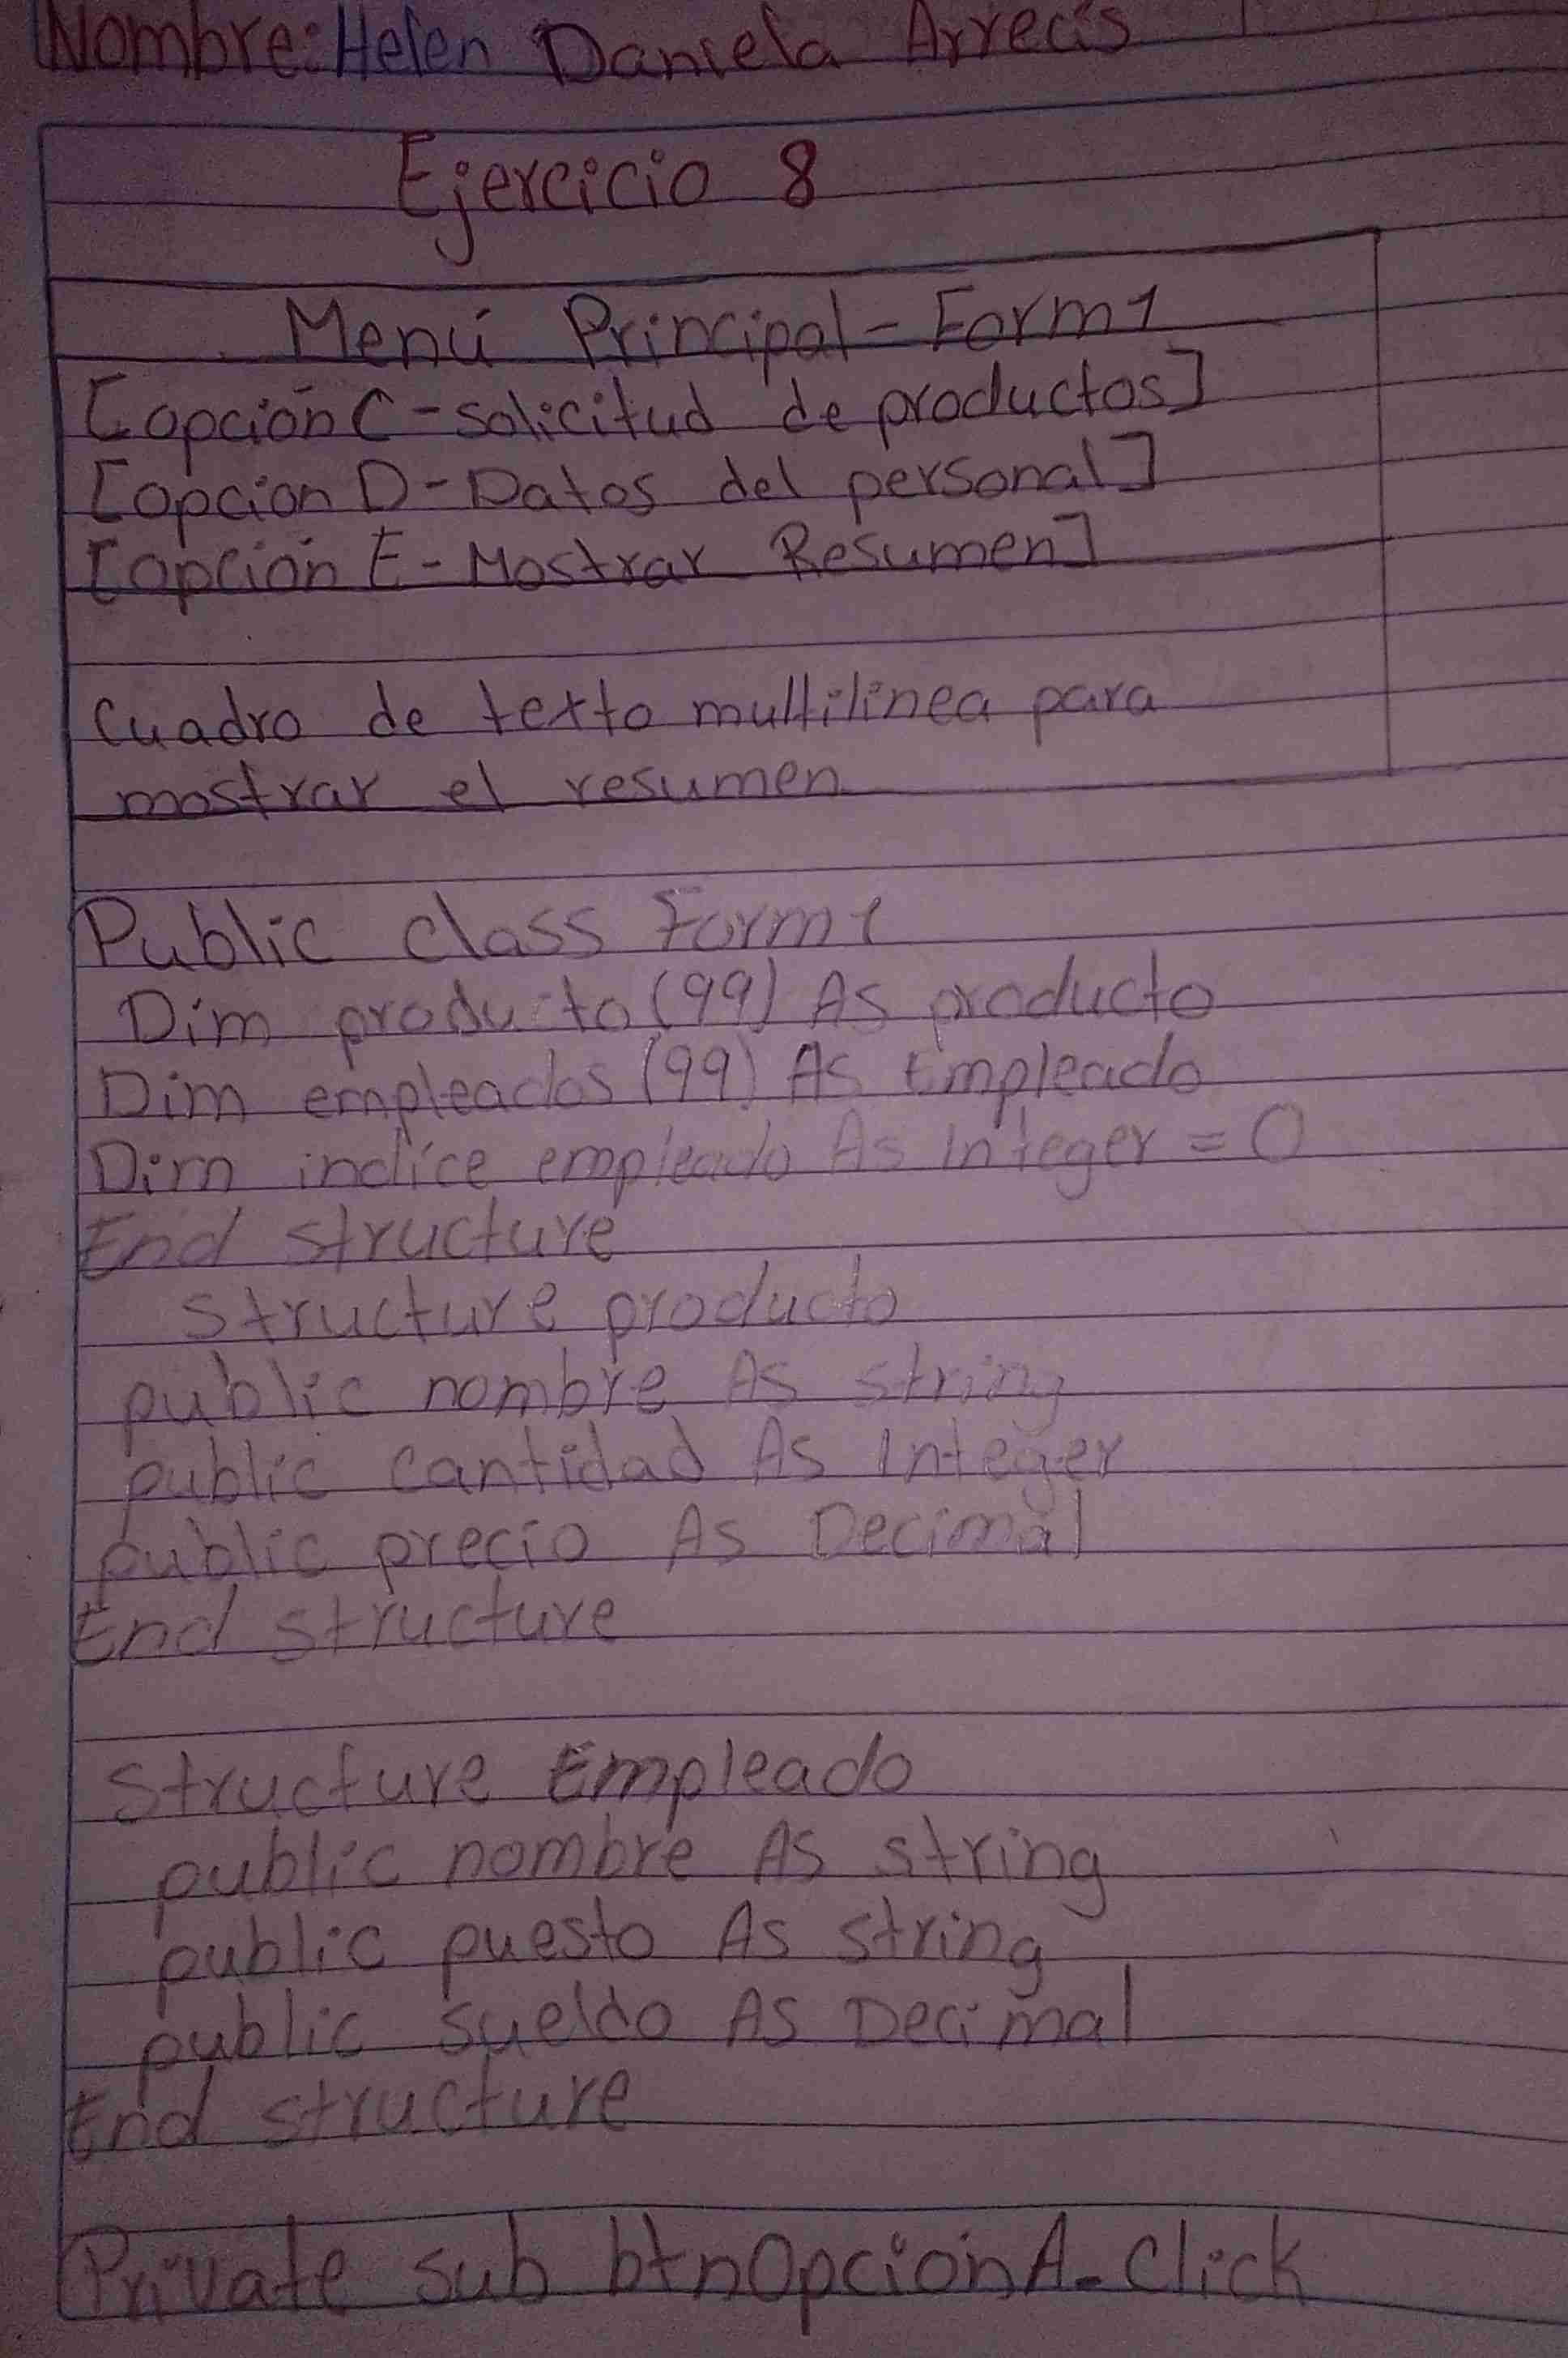 Nombre: Helen Daniela Arrecis
Ejercicio 8
Menú Principal - Form1
[opción C - solicitud de productos]
[opcion D - Datos del personal]
[opción E - Mostrar Resumen]
cuadro de texto multilinea para
mostrar el resumen
Public class Form1
Dim produ to (99) As producto
Dim empleados (99) As Empleado
Dim indice empleado As Integer = 0
End structure
structure producto
public nombre As string
public cantidad As Integer
public precio As Decimal
End structure
structure Empleado
public nombre As string
public puesto As string
public sueldo As Decimal
End structure
Private sub btnOpciónA_Click